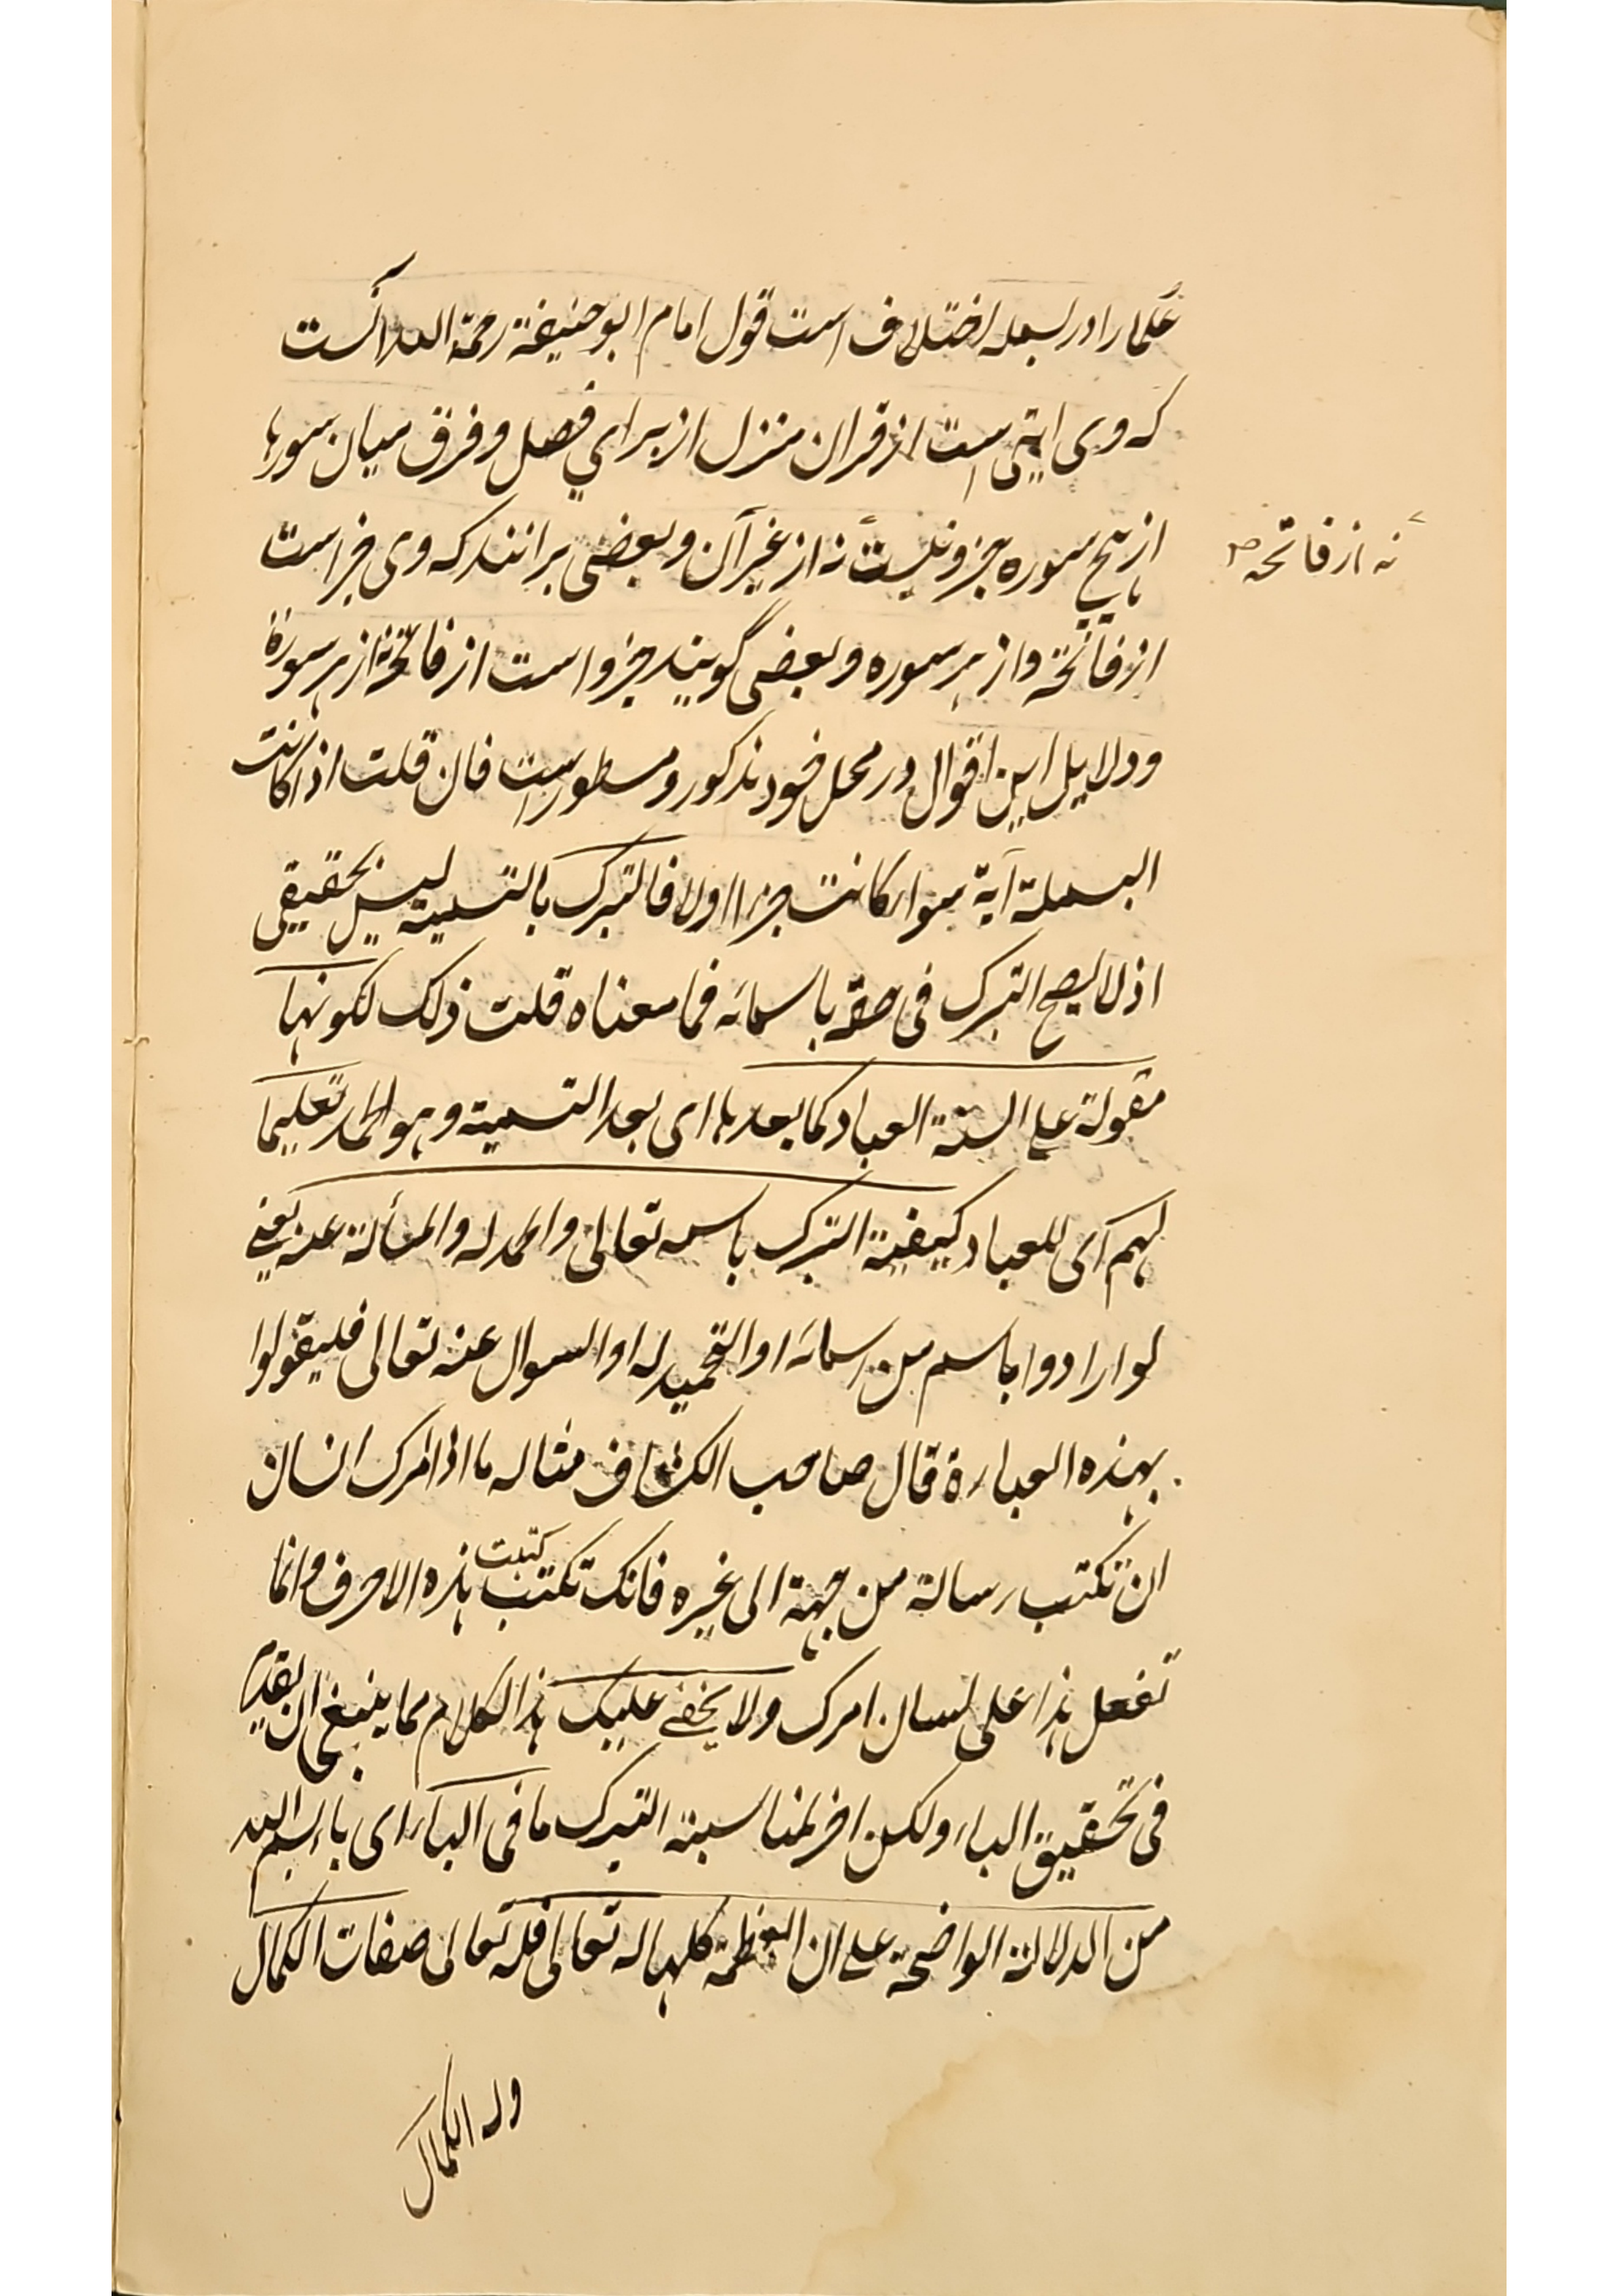 علما را در بسمله اختلاف است قول امام ابو حنیفة رحمة الله آنست
که وی ایتی است از قران منزل از برای فصل و فرق میان سورها
از هیچ سوره جزو نیست نه از غیر آن و بعضی برانند که وی جزء است
نه از فاتحه صح
از فاتحه و از هر سوره و بعضی گویند جزو است از فاتحه نه از هر سورة
و دلایل این اقوال در محل خود مذکور و مسطور است فان قلت اذا کانت
البسملة آیة سواء کانت جزءا او لا فالتبرک بالتسمیة لیس بحقیقی
اذ لا یصح التبرک فی حقه باسمائه فما معناه قلت ذلک لکونها
مقولة علی السنة العباد کما بعدها ای بعد التسمیة و هو الحمد تعلیما
لهم ای للعباد کیفیة التبرک باسمه تعالی والحمد له والمسألة عنه یعنی
لو ارادوا باسم من اسمائه او التحمید له او السوال عنه تعالی فلیقولوا
بهذه العبارة قال صاحب الکشاف مثاله ما اذا امرک انسان
ان تکتب رسالة من جهة الی غیره فانک تکتب کتبت هذه الاحرف وانما
تفعل هذا علی لسان امرک ولا یخفی علیک هذا الکلام مما ینبغی ان یقدم
فی تحقیق الباء ولکن اخر لمناسبة التبرک ما فی الباء ای باء بسم الله
من الدلالة الواضحة علی ان العظمة کلها له تعالی فله تعالی صفات الکمال
وله الکمال